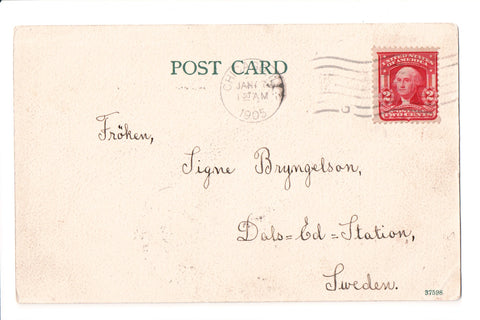 POST CARD
JAN 7
1905
UNITED STATES
OF AMERICA
2 2
POSTAGE
TWO CENTS
Fröken,
Signe Bryngelson,
Dals=Ed=Station,
Sweden.
37598